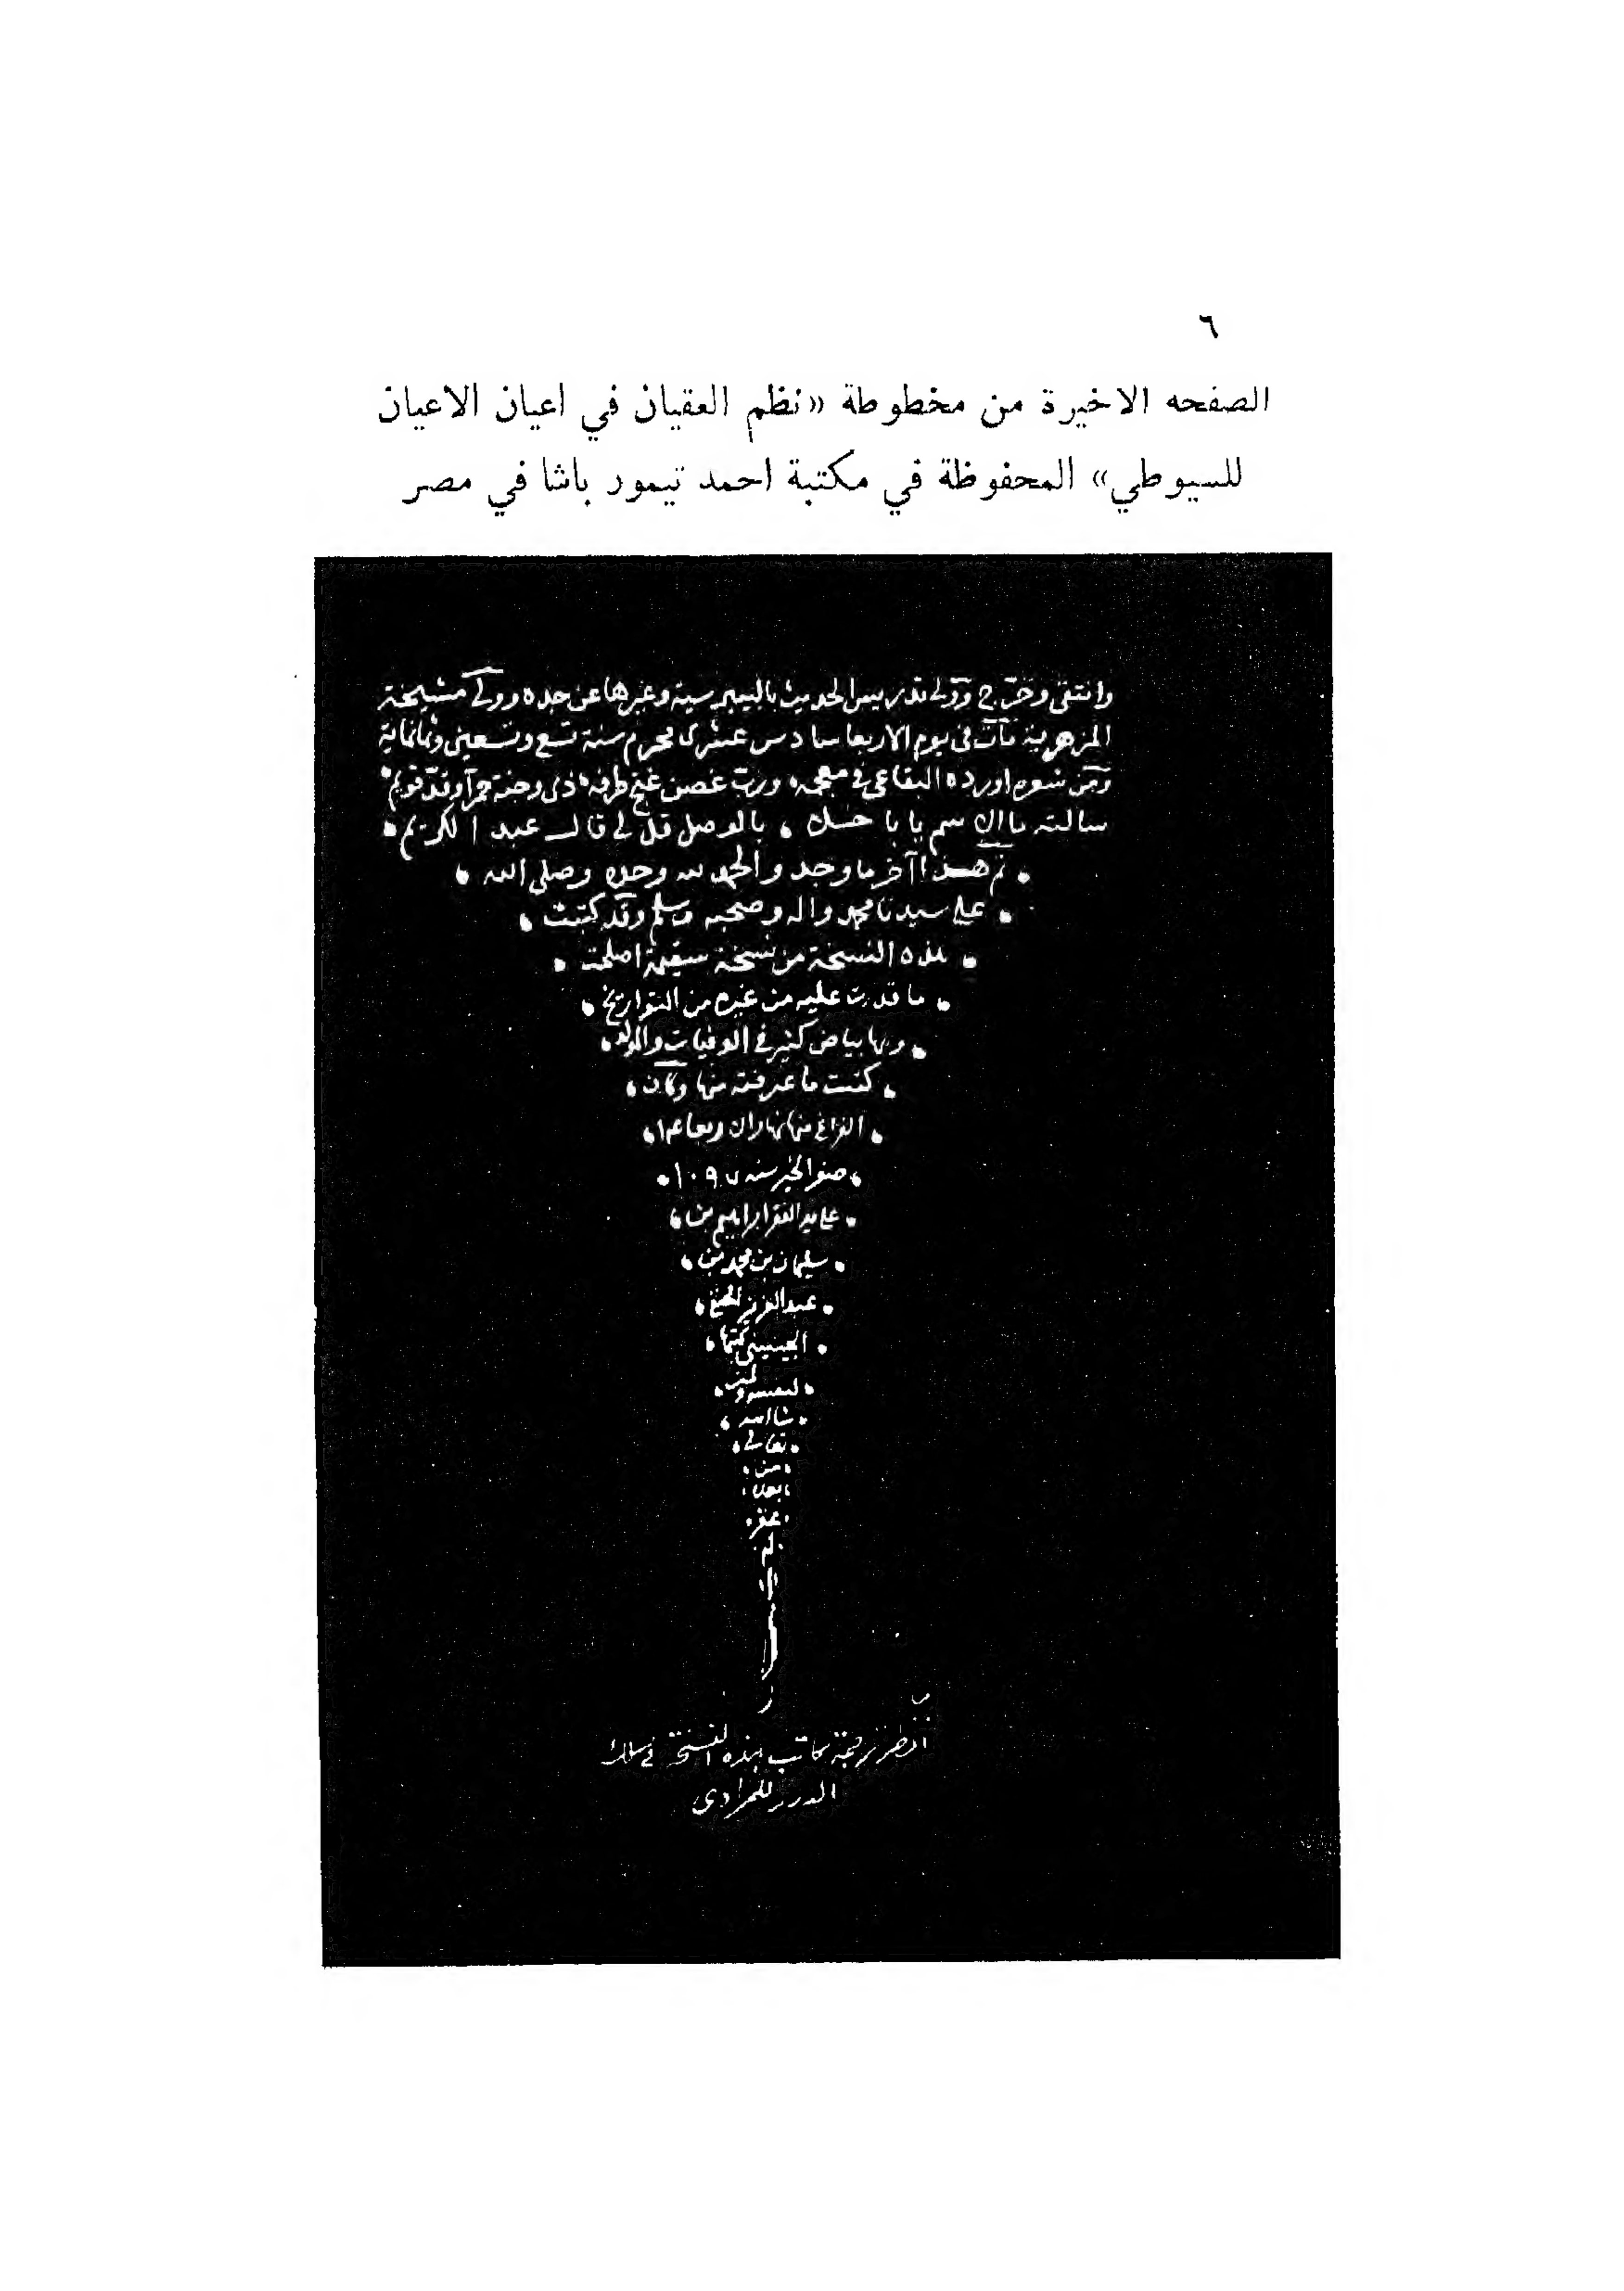 ٦
الصفحه الاخيرة من مخطوطة «نظم العقيان في اعيان الاعيان
للسيوطي» المحفوظة في مكتبة احمد تيمور باشا في مصر
وانتقى وخرّج وولى تدريس الحديث بالبيبرسية وغيرها عن جده وولى مشيخة
المزهرية مات فى يوم الاربعا سادس عشرى محرم سنة تسع وتسعين وثمانماية
ومن شعره اورده البقاعى فى معجمه ورب غصن غنج طرفه ذى وجنة حمرا وقدّ قويم
سالته ما الاسم يا با حسن بالوصل قل لى قال عبد الكريم
تم هذا آخر ما وجد والحمد لله وحده وصلى الله
على سيدنا محمد واله وصحبه وسلم وقد كتبت
هذه النسخة من نسخة سقيمة اصلحت
ما قدرت عليه من غيره من التواريخ
وبها بياض كثير في الوفيات والموالد
كتبت ما عرفته منها وكان
الفراغ منها نهار الاربعا
صفر الخير سنه ١٠٩٧
على يد الفقير ابراهيم بن
سليمان بن محمد بن
عبد العزيز الحنفي
الجينينى كتبها
لنفسه ولمن
شا الله
تعالى
من
بعده
غفر
لهم
انظر ترجمة كاتب هذه النسخة في سلك
الدرر للمرادى